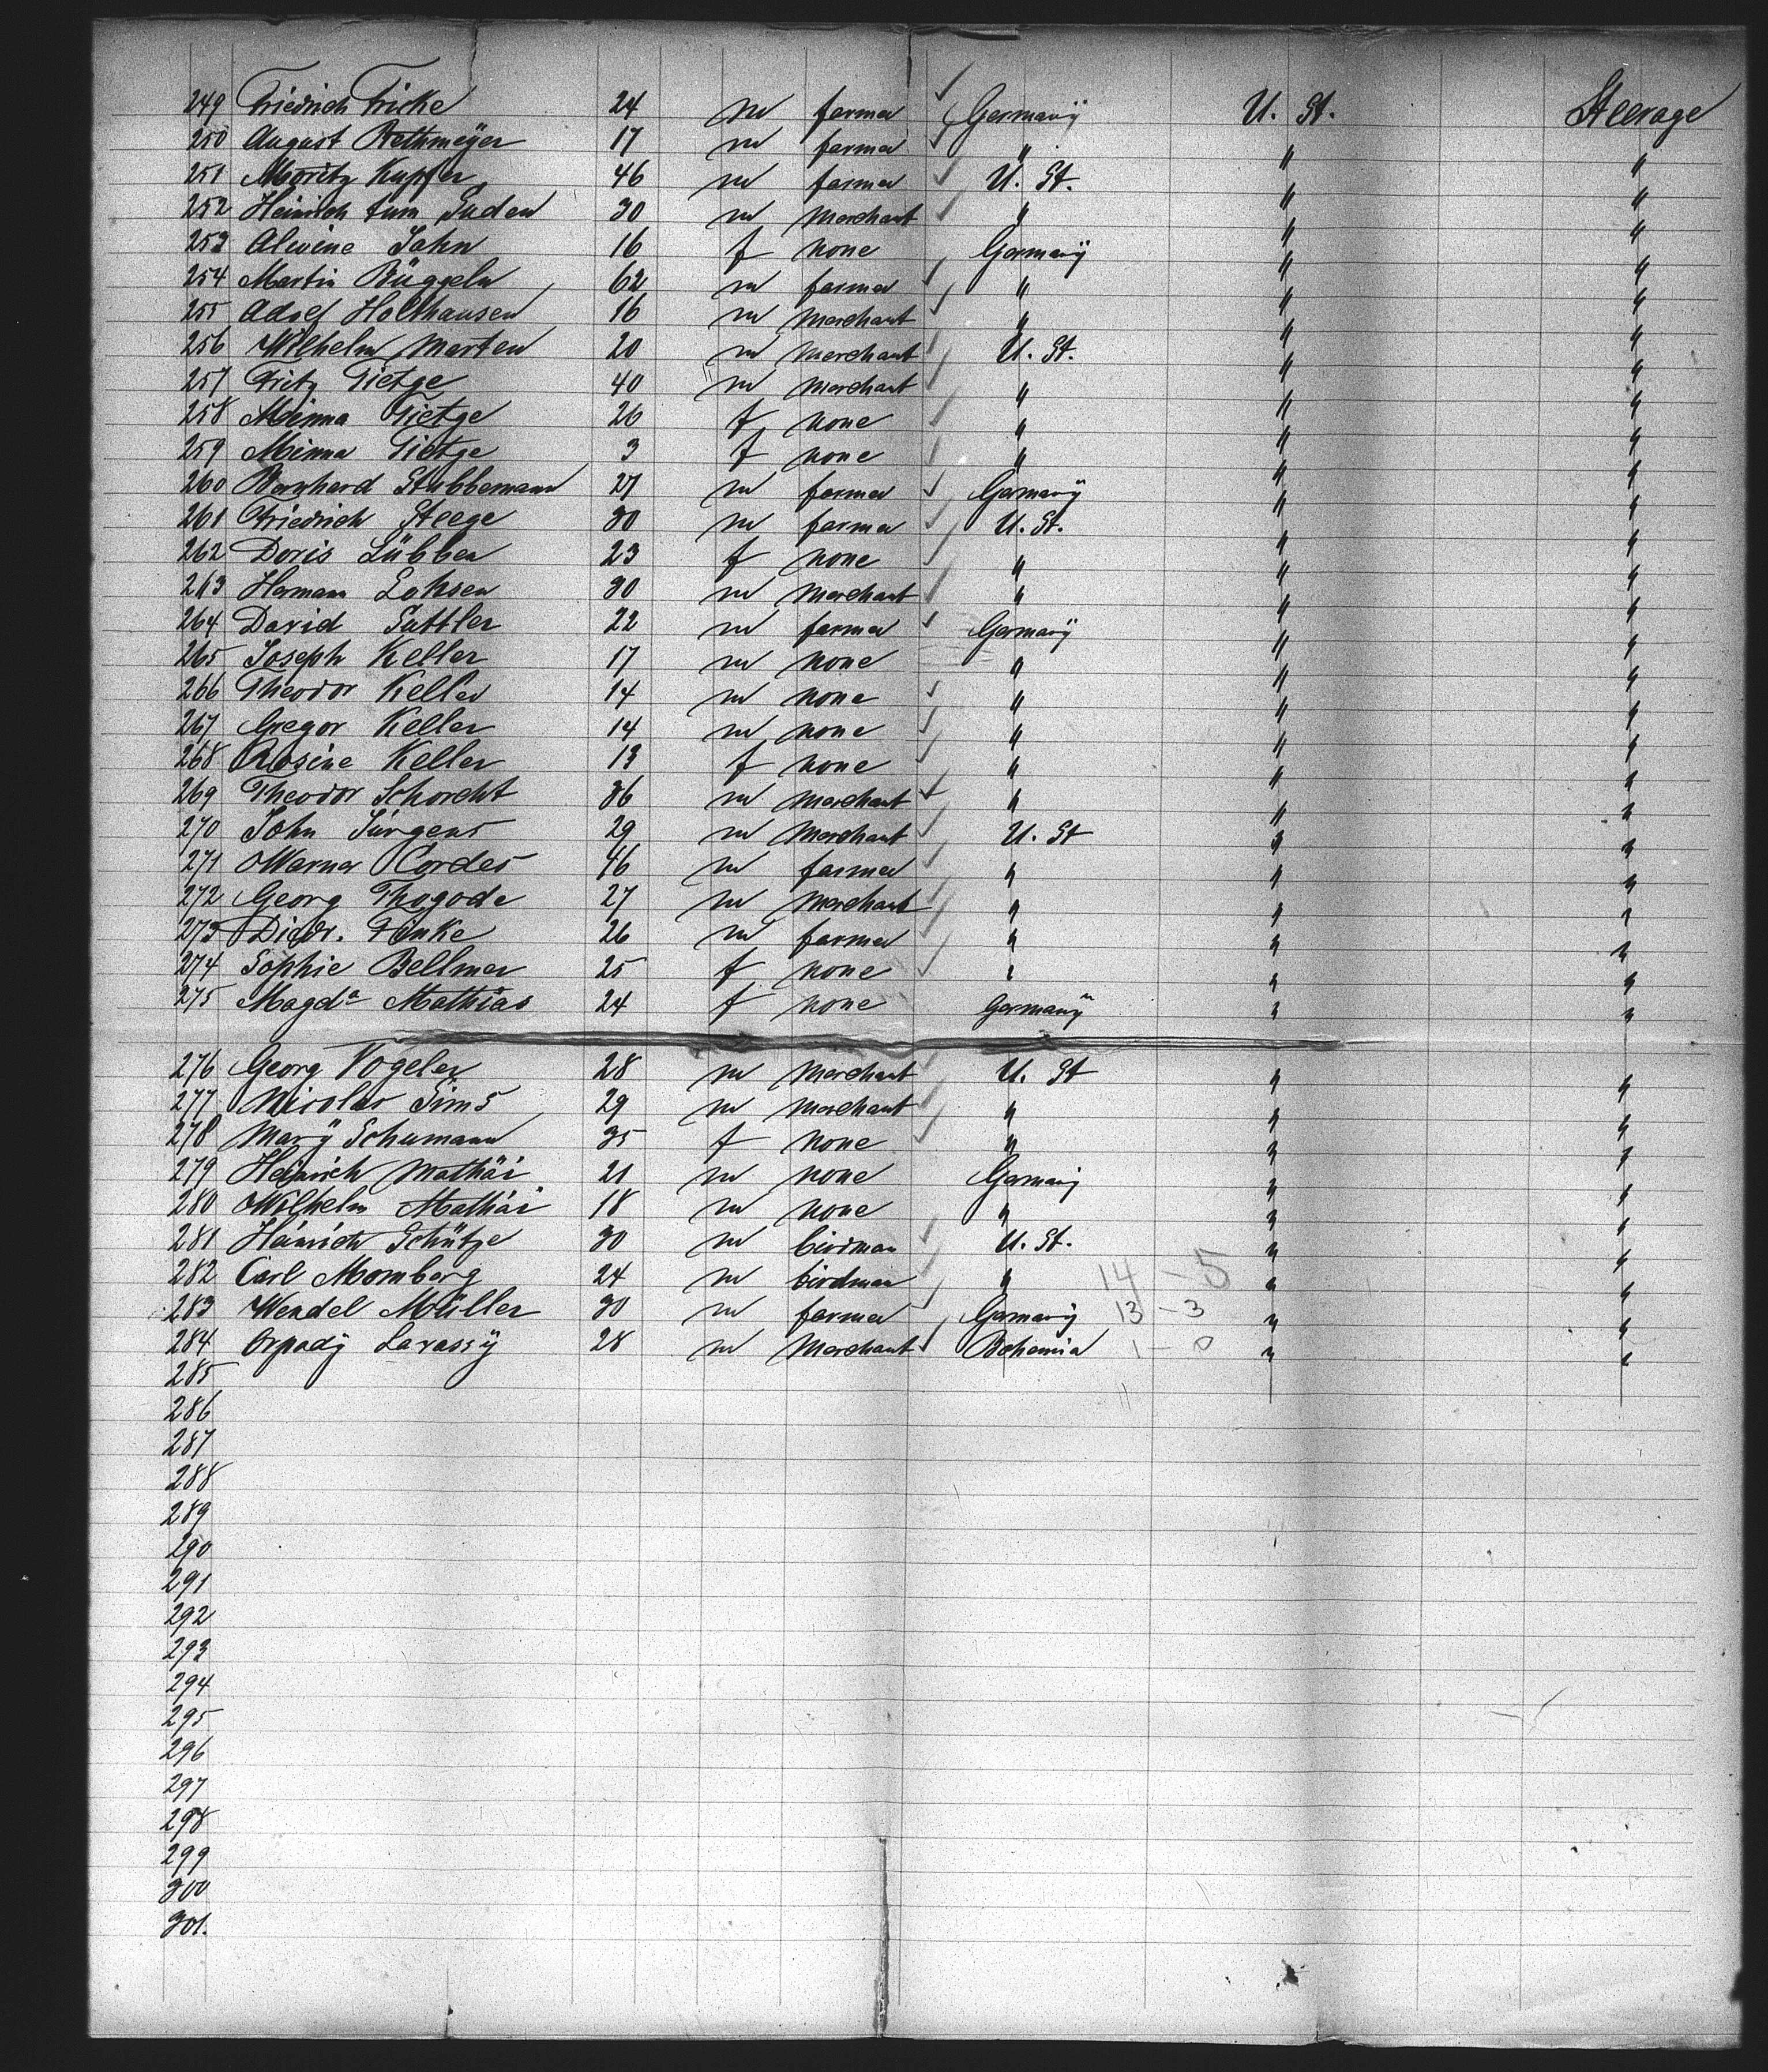 249 Friedrich Fricke 24 m farmer Germany U. St. Steerage
250 August Rethmeyer 17 m farmer " " "
251 Moritz Kupfer 46 m farmer U. St. " "
252 Heinrich tum Suden 30 m Merchant " " "
253 Alwine Jahn 16 f none Germany " "
254 Martin Büggeln 62 m farmer " " "
255 Adolf Holthausen 16 m Merchant " " "
256 Wilhelm Marten 20 m Merchant U. St. " "
257 Fritz Tietge 40 m Merchant " " "
258 Minna Tietge 26 f none " " "
259 Minna Tietge 3 f none " " "
260 Bernhard Stubbemann 27 m farmer Germany " "
261 Friedrich Steege 30 m farmer U. St. " "
262 Doris Lübben 23 f none " " "
263 Herman Lohsen 30 m Merchant " " "
264 David Sattler 22 m farmer Germany " "
265 Joseph Keller 17 m none " " "
266 Theodor Keller 14 m none " " "
267 Gregor Keller 14 m none " " "
268 Rosine Keller 13 f none " " "
269 Theodor Schorcht 36 m Merchant " " "
270 John Jürgens 29 m Merchant U. St " "
271 Werner Cordes 46 m farmer " " "
272 Georg Thogode 27 m Merchant " " "
273 Diedr. Finke 26 m farmer " " "
274 Sophie Bellmer 25 f none " " "
275 Magda Mathias 24 f none Germany " "
276 Georg Vogeler 28 m Merchant U. St " "
277 Nicolas Sims 29 m Merchant " " "
278 Mary Schumann 35 f none " " "
279 Heinrich Mathäi 21 m none Germany " "
280 Wilhelm Mathäi 18 m none " " "
281 Heinrich Schütze 30 m birdman U. St. " "
282 Carl Momberg 24 m birdman " 14 - 5 " "
283 Wendel Müller 30 m farmer Germany 13 - 3 " "
284 Arpady Lavassy 28 m Merchant Bohemia 1 - 0 " "
285
286
287
288
289
290
291
292
293
294
295
296
297
298
299
300
301.